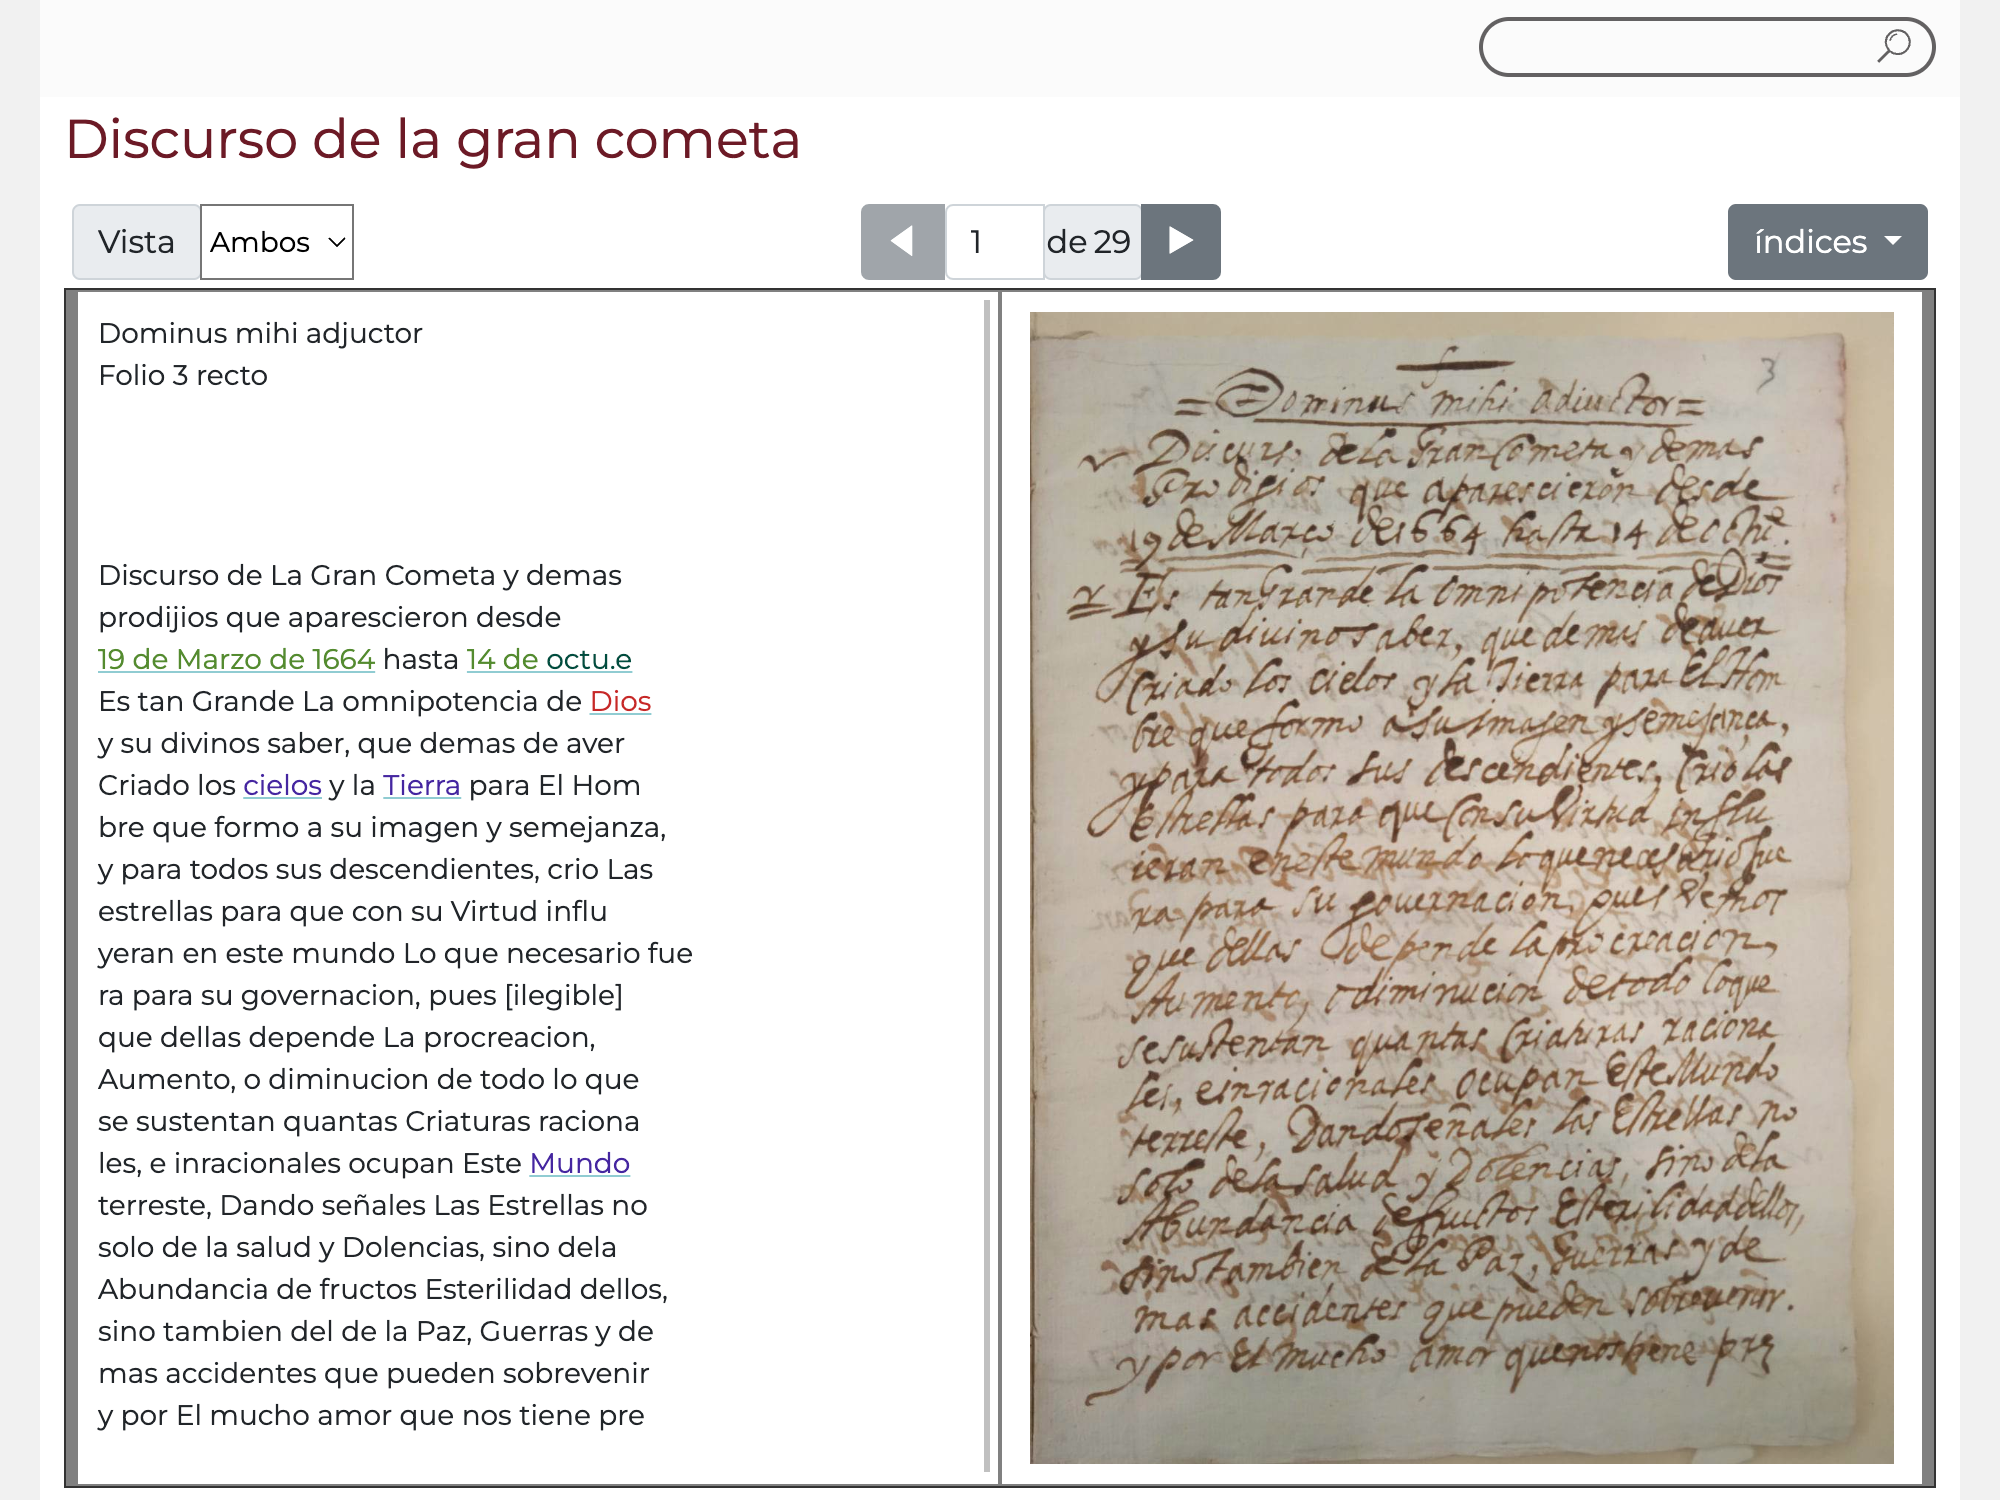 Discurso de la gran cometa
Vista
Ambos
1
de 29
índices
Dominus mihi adjuctor
Folio 3 recto
Discurso de La Gran Cometa y demas
prodijios que aparescieron desde
19 de Marzo de 1664 hasta 14 de octu.e
Es tan Grande La omnipotencia de Dios
y su divinos saber, que demas de aver
Criado los cielos y la Tierra para El Hom
bre que formo a su imagen y semejanza,
y para todos sus descendientes, crio Las
estrellas para que con su Virtud influ
yeran en este mundo Lo que necesario fue
ra para su governacion, pues [ilegible]
que dellas depende La procreacion,
Aumento, o diminucion de todo lo que
se sustentan quantas Criaturas raciona
les, e inracionales ocupan Este Mundo
terreste, Dando señales Las Estrellas no
solo de la salud y Dolencias, sino dela
Abundancia de fructos Esterilidad dellos,
sino tambien del de la Paz, Guerras y de
mas accidentes que pueden sobrevenir
y por El mucho amor que nos tiene pre
3
=Dominus mihi adiuctor=
Discurso dela Gran Cometa y demas
Prodigios que aparescieron desde
19 de Março de 1664 hasta 14 de octu.e
Es tan Grande la omnipotencia de Dios
y su diuino saber, que demas de auer
Criado los cielos y la Tierra para El Hom
bre que formo a su imagen y semejança,
y para todos sus descendientes, Crio las
estrellas para que Con su Virtud influ
ieran en este mundo lo que necesario fue
ra para su gouernacion, pues Vemos
que dellas depende la procreacion,
Aumento, o diminucion de todo lo que
se sustentan quantas Criaturas raciona
les, e inracionales ocupan Este Mundo
terreste, Dando señales las Estrellas no
solo de la salud y Dolencias, sino dela
Abundancia de fructos Esterilidad dellos,
sino tambien de la Paz, Guerras y de
mas accidentes que pueden sobreuenir.
y por El mucho amor que nos tiene pre